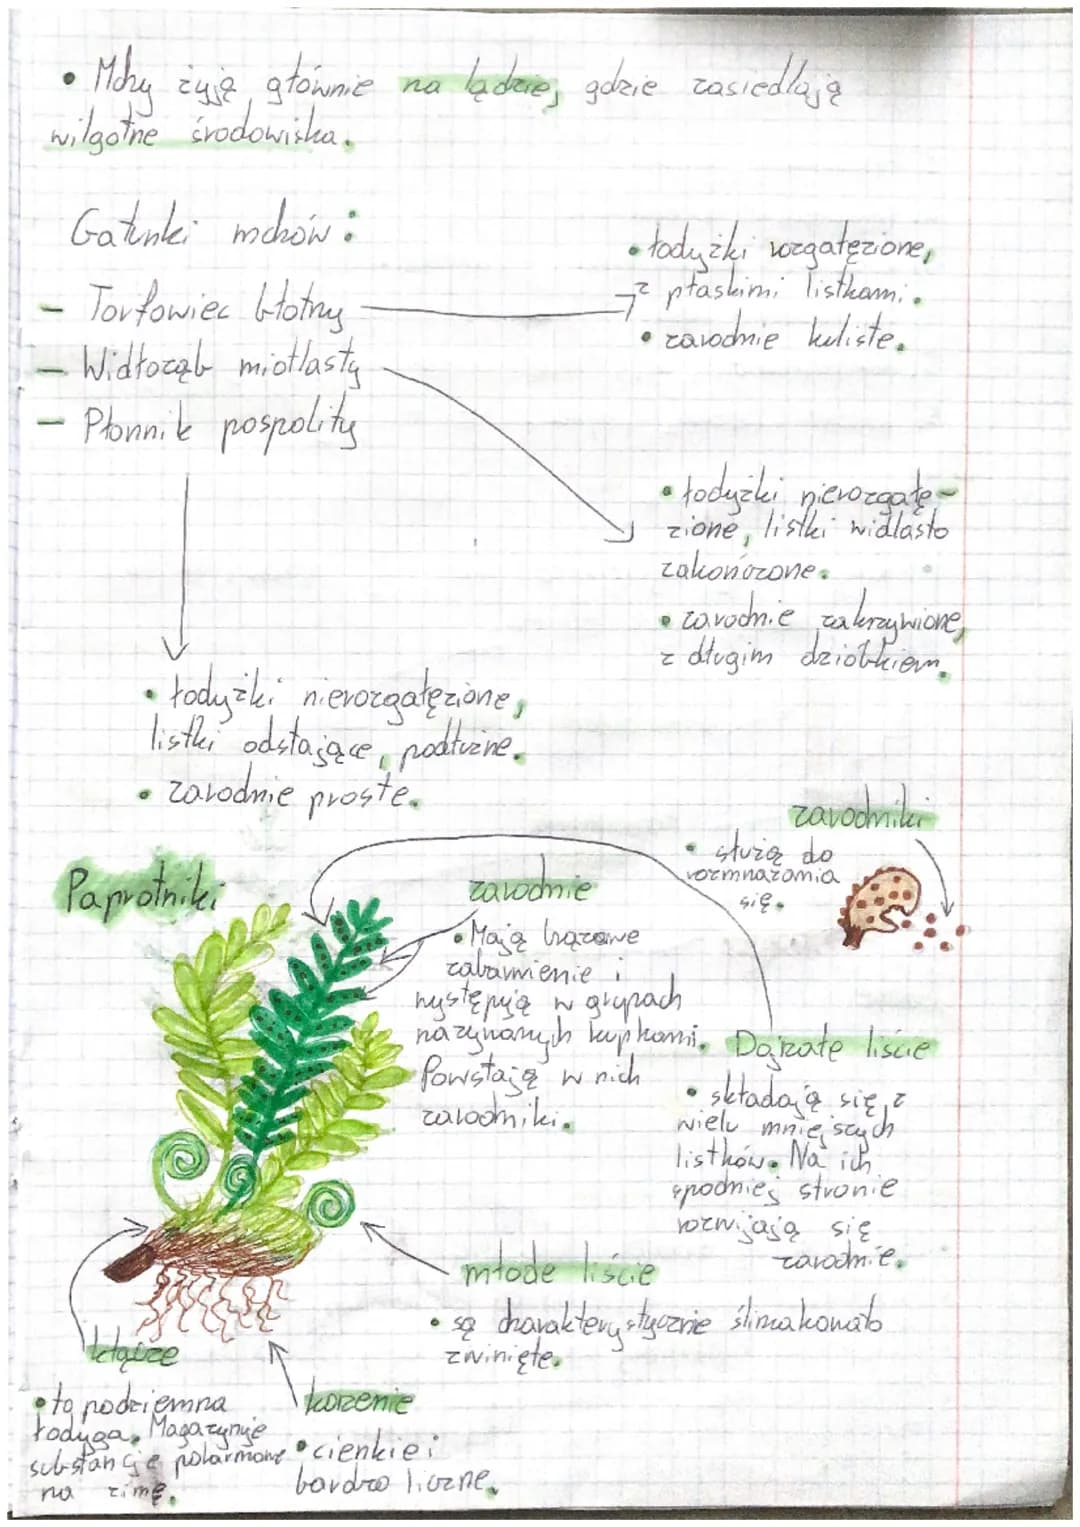 • Mchy żyją głównie na lądzie, gdzie zasiedlają
wilgotne środowiska.
Gatunki mchów:
- Torfowiec błotny
- Widłoząb miotlasty
- Płonnik pospolity
• łodyżki rozgałęzione,
z płaskimi listkami.
• zarodnie kuliste.
• łodyżki nierozgałę-
zione, listki widlasto
zakończone.
• zarodnie zakrzywione,
z długim dzióbkiem.
• łodyżki nierozgałęzione,
listki odstające, podłużne.
• zarodnie proste.
Paprotniki
zarodnie
• Mają brązowe
zabarwienie i
występują w grupach
nazywanych kupkami.
Powstają w nich
zarodniki.
zarodniki
• służą do
rozmnażania
się.
Dojrzałe liście
• składają się z
wielu mniejszych
listków. Na ich
spodniej stronie
rozwijają się
zarodnie.
młode liście
• są charakterystycznie ślimakowato
zwinięte.
kłącze
• to podziemna
łodyga. Magazynuje
substancje pokarmowe
na zimę.
korzenie
• cienkie i
bardzo liczne.